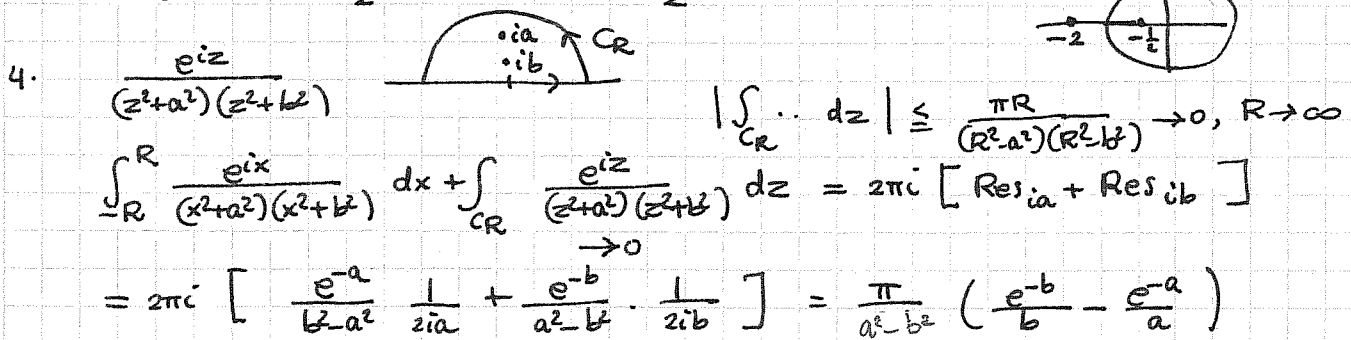 -2 -1/2
4. e^{iz}/((z²+a²)(z²+b²)) •ia •ib C_R
|∫_{C_R} ·· dz| ≤ πR/((R²-a²)(R²-b²)) → 0, R→∞
∫_{-R}^{R} e^{ix}/((x²+a²)(x²+b²)) dx + ∫_{C_R} e^{iz}/((z²+a²)(z²+b²)) dz = 2πi [Res_{ia} + Res_{ib}]
→0
= 2πi [ e^{-a}/(b²-a²) 1/(2ia) + e^{-b}/(a²-b²) · 1/(2ib) ] = π/(a²-b²) ( e^{-b}/b - e^{-a}/a )